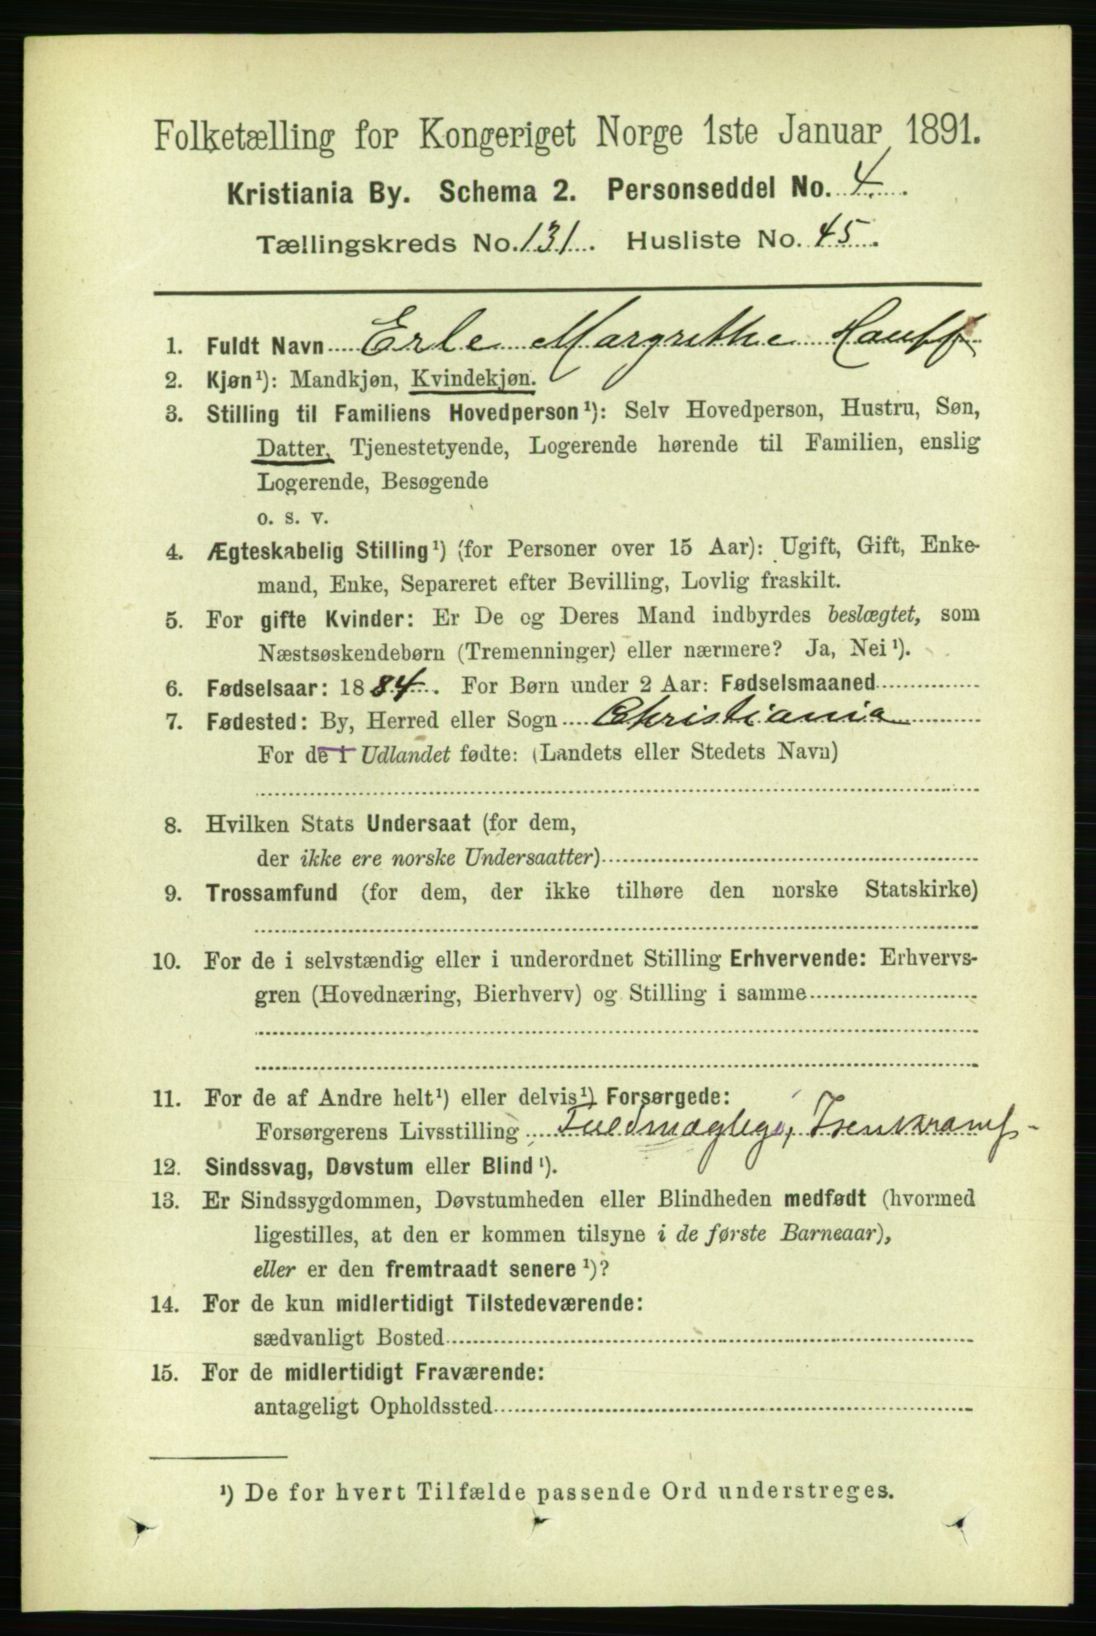 Folketælling for Kongeriget Norge 1ste Januar 1891.
Kristiania By. Schema 2. Personseddel No. 4.
Tællingskreds No. 131. Husliste No. 45.
1. Fuldt Navn Erle Margrethe Hauff
2. Kjøn¹): Mandkjøn, Kvindekjøn.
3. Stilling til Familiens Hovedperson¹): Selv Hovedperson, Hustru, Søn,
Datter, Tjenestetyende, Logerende hørende til Familien, enslig
Logerende, Besøgende
o. s. v.
4. Ægteskabelig Stilling¹) (for Personer over 15 Aar): Ugift, Gift, Enke-
mand, Enke, Separeret efter Bevilling, Lovlig fraskilt.
5. For gifte Kvinder: Er De og Deres Mand indbyrdes beslægtet, som
Næstsøskendebørn (Tremenninger) eller nærmere? Ja, Nei¹).
6. Fødselsaar: 1884. For Børn under 2 Aar: Fødselsmaaned
7. Fødested: By, Herred eller Sogn Christiania
For de i Udlandet fødte: (Landets eller Stedets Navn)
8. Hvilken Stats Undersaat (for dem,
der ikke ere norske Undersaatter)
9. Trossamfund (for dem, der ikke tilhøre den norske Statskirke)
10. For de i selvstændig eller i underordnet Stilling Erhvervende: Erhvervs-
gren (Hovednæring, Bierhverv) og Stilling i samme
11. For de af Andre helt¹) eller delvis¹) Forsørgede:
Forsørgerens Livsstilling Fuldmægtig i Isenkramf-
12. Sindssvag, Døvstum eller Blind¹).
13. Er Sindssygdommen, Døvstumheden eller Blindheden medfødt (hvormed
ligestilles, at den er kommen tilsyne i de første Barneaar),
eller er den fremtraadt senere¹)?
14. For de kun midlertidigt Tilstedeværende:
sædvanligt Bosted
15. For de midlertidigt Fraværende:
antageligt Opholdssted
¹) De for hvert Tilfælde passende Ord understreges.